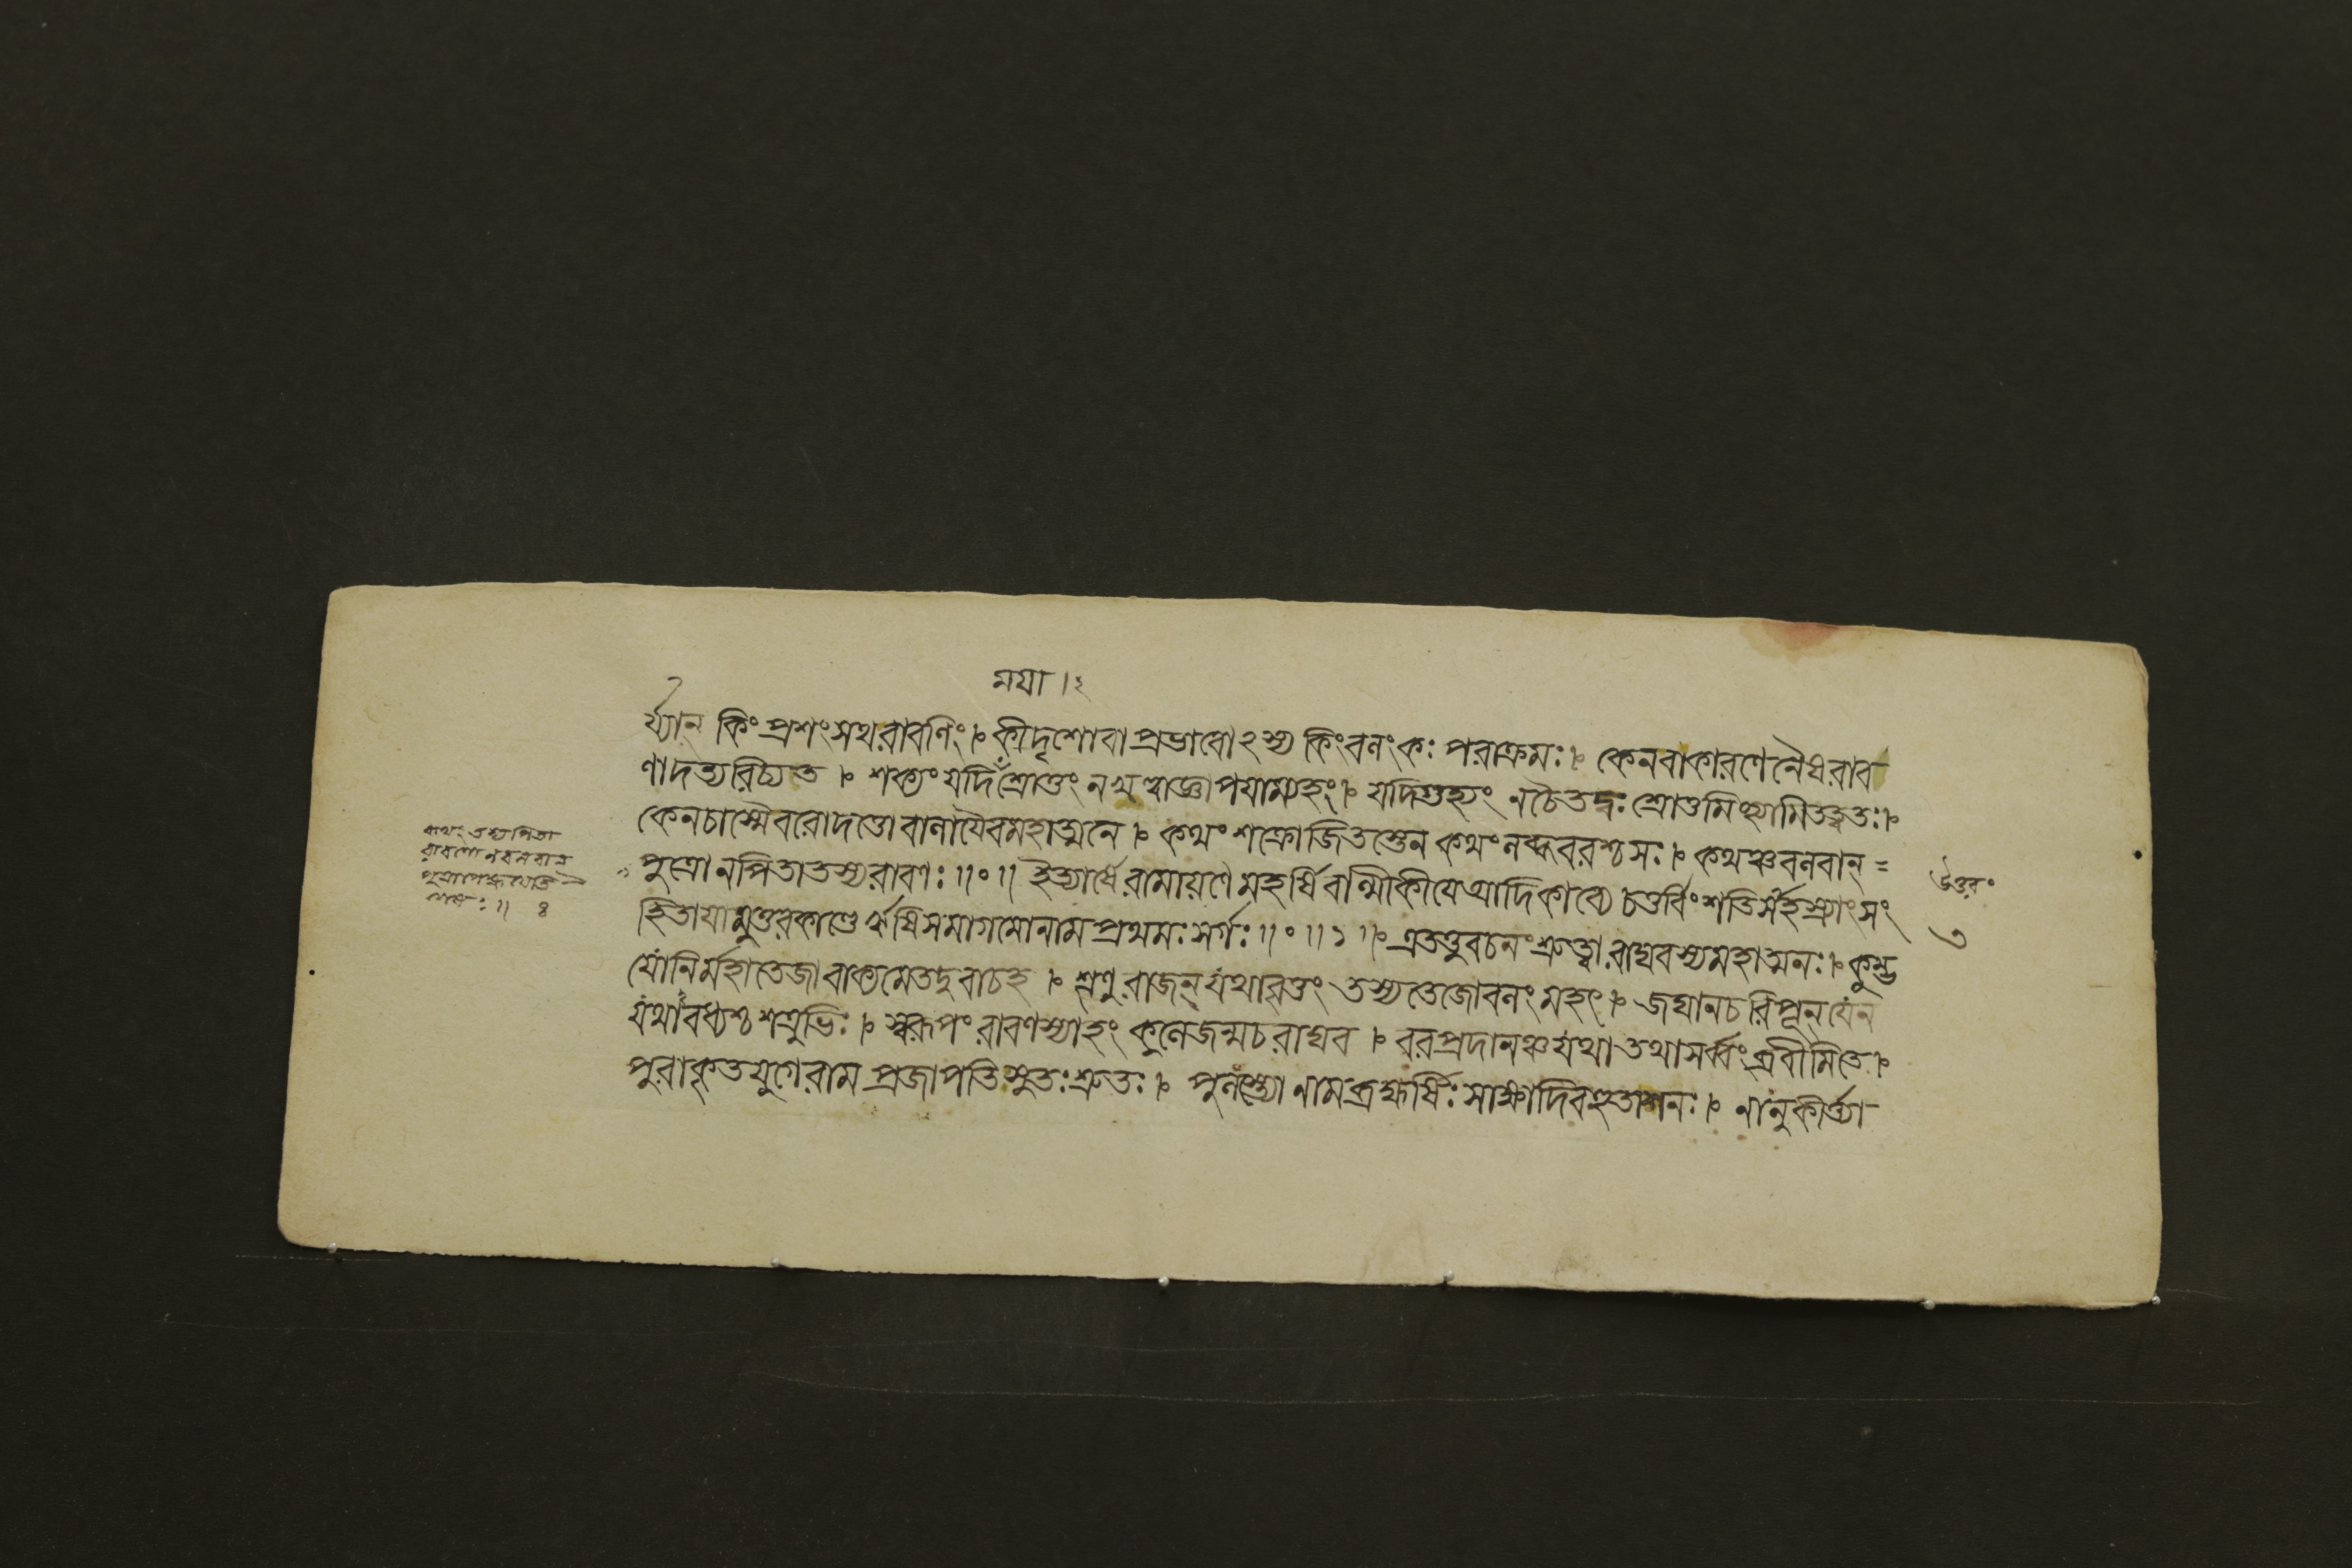 ময়া ।২
র্য্যান কিং প্রশংসথরাবণিং । কীদৃশোবা প্রভাবোঽস্য কিংবলংকঃ পরাক্রমঃ । কেনবাকারণেনৈষরাব
ণাদত্যরিচ্যত । শক্যং যদি শ্রোতুং নখল্বাজ্ঞাপযাম্যহং । যদিগুহ্যং নচৈতদ্বঃ শ্রোতুমিচ্ছামিতত্ত্বতঃ ।
কেনচাস্মৈবরোদত্তো বালাযৈবমহাত্মনে । কথং শক্রোজিতস্তেন কথং লব্ধবরশ্চসঃ । কথঞ্চবলবান্ =
পুত্রো নপিতাতস্যরাবণঃ ॥০॥ ইত্যার্ষে রামায়ণে মহর্ষি বাল্মীকীযে আদিকাব্যে চতুর্বিংশতিসহস্র্যাংসং
হিতাযামুত্তরকাণ্ডে ঋষিসমাগমোনাম প্রথমঃ সর্গঃ ॥০॥১॥ এতত্তুবচনং শ্রুত্বা রাঘবস্যমহাত্মনঃ । কুম্ভ
যোনির্মহাতেজাবাক্যমেতদুবাচহ । শৃণু রাজন্ যথাবৃত্তং তস্যতেজোবলংমহৎ । জঘানচরিপূন্ যেন
যথাবধ্যশ্চ শত্রুভিঃ । স্বরূপং রাবণস্যাহং কুলেজন্মচরাঘব । বরপ্রদানঞ্চযথা তথাসর্ব্বংব্রবীমিতে ।
পুরাকৃতযুগেরাম প্রজাপতিসুতঃশ্রুতঃ । পুলস্ত্যো নামব্রহ্মর্ষিঃ সাক্ষাদিবহুতাশনঃ । নানুকীর্ত্ত্যা
কথং তস্য পিতা
রাবণো নবলবান্
উত্তর০
৩